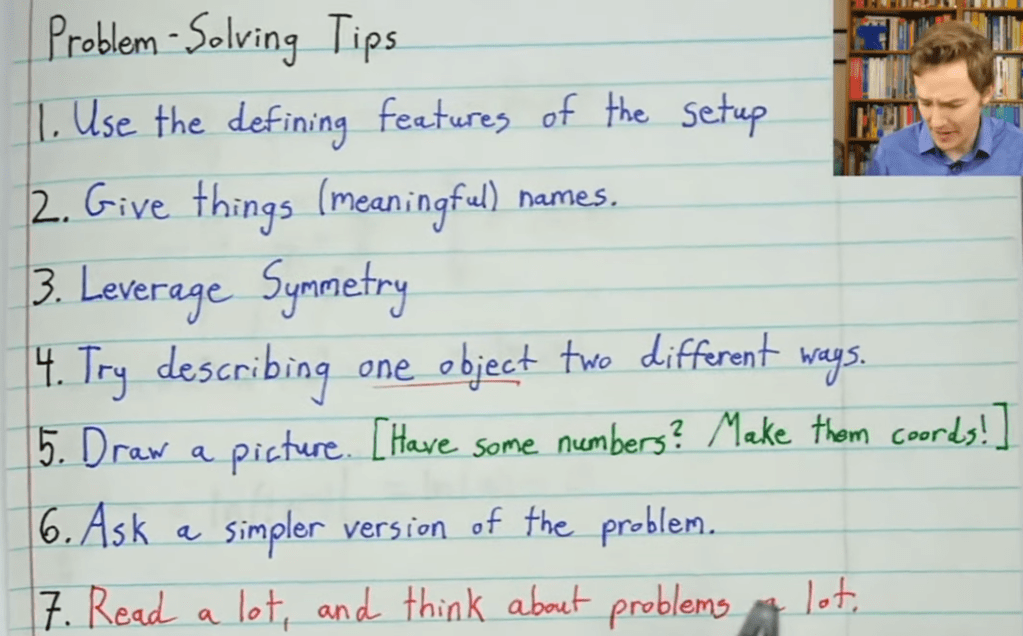 Problem-Solving Tips
1. Use the defining features of the setup
2. Give things (meaningful) names.
3. Leverage Symmetry
4. Try describing one object two different ways.
5. Draw a picture. [Have some numbers? Make them coords!]
6. Ask a simpler version of the problem.
7. Read a lot, and think about problems a lot.